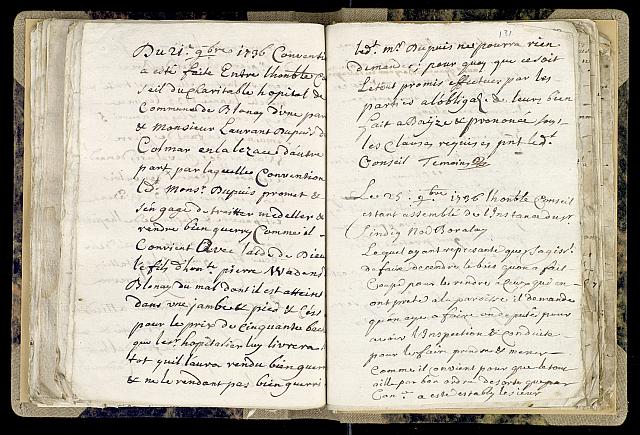 Du 21e. 9bre 1736 Conventi
a esté faite Entre lhonble Co
seil du Charitable hopital de
Commune de Blonay d'vne par
& Monsieur Laurant Dupuis d
Colmar en la lezace d'autre
part, par laquelles Convention
led. Monsr. Dupuis promet &
s'en gage de traitter medeller &
rendre bien guerry Comme il
Convient Avec laide de Dieu
le fils d'honte. pierre
Blonay du mal dont il est atteint
dans vne jambe & pied & Cess
pour le prix de Cinquante bac
que le sr. hopitalier luy livrera
tot quil laura rendu bien guerr
& ne le rendant pas bien guerri
131
ledt. mr. Dupuis ne pourra rien
demander, pour quoy que ce soit
Le tout promis effectuer par les
parties a lobligaon. de leurs bien
fait a Baÿze & prononcé sous
les Clauses requises pnt ledt.
Conseil Temoins
Le 25e. 9bre 1736 lhonble Conseil
estant assemblé de l'instance du sr
sindiq Nod Boralay
Lequel ayant representé que sagist.
de faire decendre le bois quon a fait
Coupé pour les rendre a Ceux qui en
ont preté a la paroisse il demande
quon aye a faire vn deputé pour
avoir l'Inspection & Conduite
pour le fair prendre & mener
Comme il convient pour que le tou
aille par bon ordre de sorte que par
Conr. a esté establÿ le sieur